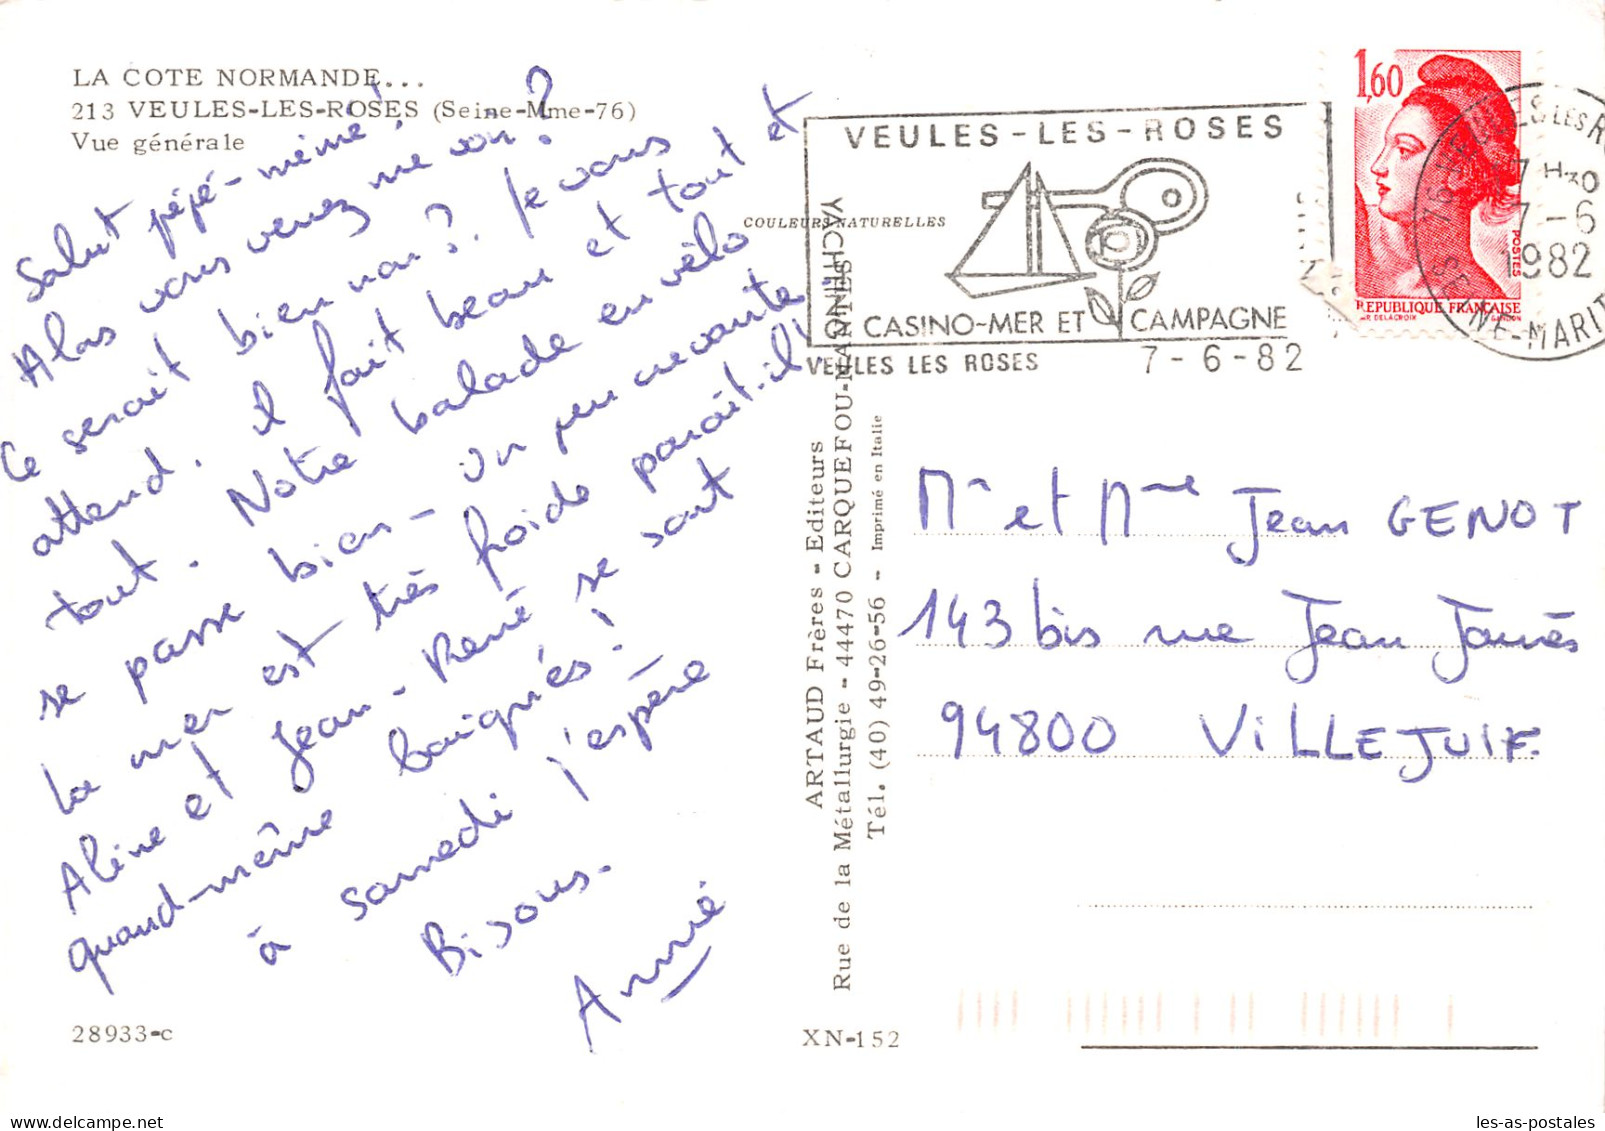 LA COTE NORMANDE...
213 VEULES-LES-ROSES (Seine-Mme-76)
Vue générale
Salut pépé-mémé!
Alors vous venez me voir?
Ce serait bien non?. Je vous
attend. il fait beau et tout et
tout. Notre balade en vélo
se passe bien - un peu crevante.
la mer est très froide paraît-il!
Aline et Jean-René se sont
quand-même baignés!
à samedi j'espère
Bisous.
Annie
28933-c
COULEURS NATURELLES
ARTAUD Frères - Editeurs
Rue de la Métallurgie - 44470 CARQUEFOU-NANTES
Tél. (40) 49-26-56 - Imprimé en Italie
XN-152
VEULES-LES-ROSES
YACHTING
CASINO-MER ET CAMPAGNE
VEULES LES ROSES 7-6-82
1,60
POSTES
REPUBLIQUE FRANÇAISE
7H30
7-6
1982
SEINE-MARIT
Mr et Mme Jean GENOT
143 bis rue Jean Jaurès
94800 VILLEJUIF.
les-as-postales